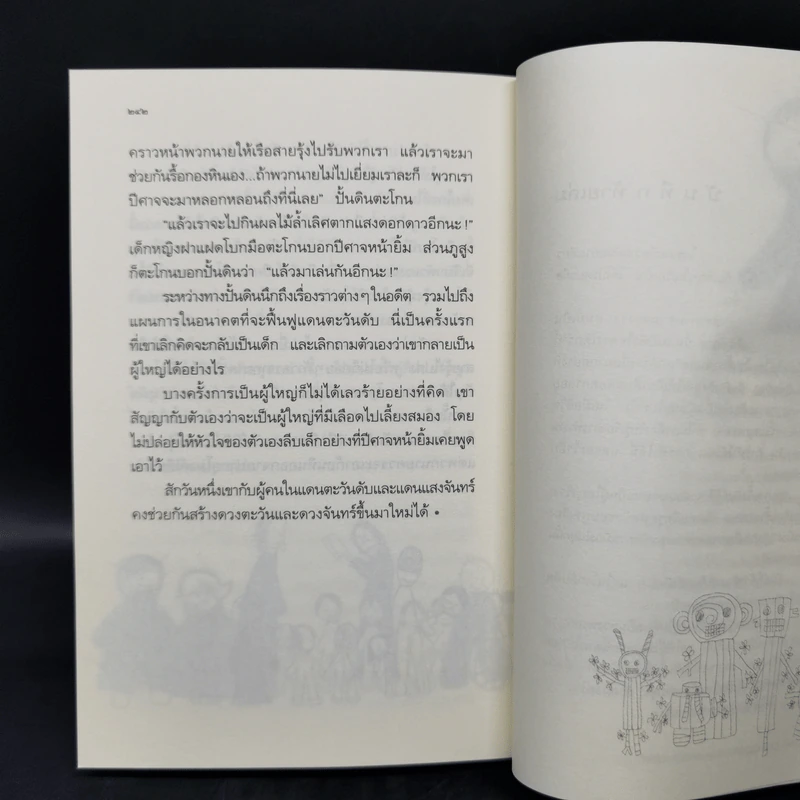 ๒๔๒
คราวหน้าพวกนายให้เรือสายรุ้งไปรับพวกเรา แล้วเราจะมา
ช่วยกันรื้อกองหินเอง...ถ้าพวกนายไม่ไปเยี่ยมเราละก็ พวกเรา
ปีศาจจะมาหลอกหลอนถึงที่นี่เลย" ปั้นดินตะโกน
"แล้วเราจะไปกินผลไม้ล้ำเลิศตากแสงดอกดาวอีกนะ!"
เด็กหญิงฝาแฝดโบกมือตะโกนบอกปีศาจหน้ายิ้ม ส่วนภูสูง
ก็ตะโกนบอกปั้นดินว่า "แล้วมาเล่นกันอีกนะ!"
ระหว่างทางปั้นดินนึกถึงเรื่องราวต่างๆในอดีต รวมไปถึง
แผนการในอนาคตที่จะฟื้นฟูแดนตะวันดับ นี่เป็นครั้งแรก
ที่เขาเลิกคิดจะกลับเป็นเด็ก และเลิกถามตัวเองว่าเขากลายเป็น
ผู้ใหญ่ได้อย่างไร
บางครั้งการเป็นผู้ใหญ่ก็ไม่ได้เลวร้ายอย่างที่คิด เขา
สัญญากับตัวเองว่าจะเป็นผู้ใหญ่ที่มีเลือดไปเลี้ยงสมอง โดย
ไม่ปล่อยให้หัวใจของตัวเองลีบเล็กอย่างที่ปีศาจหน้ายิ้มเคยพูด
เอาไว้
สักวันหนึ่งเขากับผู้คนในแดนตะวันดับและแดนแสงจันทร์
คงช่วยกันสร้างดวงตะวันและดวงจันทร์ขึ้นมาใหม่ได้ •